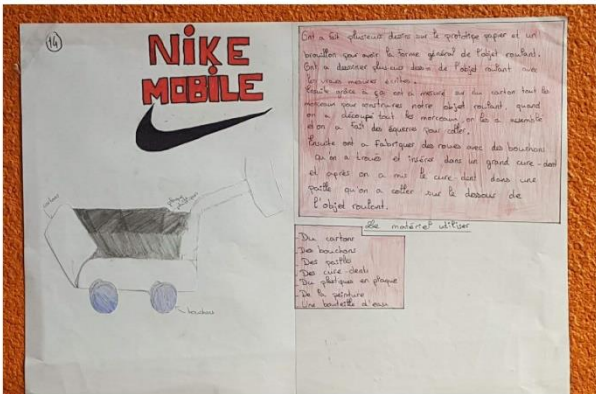 14
NIKE
MOBILE
Ont a fait plusieurs dessins sur le prototype papier et un
brouillon pour avoir la forme général de l'objet roulant.
Ont a dessiner plusieurs dessin de l'objet roulant avec
les vraies mesures écrites.
Ensuite grâce à ça ont a mesuré sur du carton tout les
morceaux pour construires notre objet roulant, quand
on a découpé tout les morceaux, on les a assemblé
et on a fait des équerre pour coller.
Ensuite ont a fabriquer des roues avec des bouchons
qu'on a troués et insérer dans un grand cure-dent
et après on a mis le cure-dent dans une
paille qu'on a coller sur le dessous de
l'objet roulant.
Le matériel utiliser
- Du cartons
- Des bouchons
- Des paille
- Des cure-dents
- Du plastique en plaque
- De la peinture
- Une bouteille d'eau
cartons
bouchons